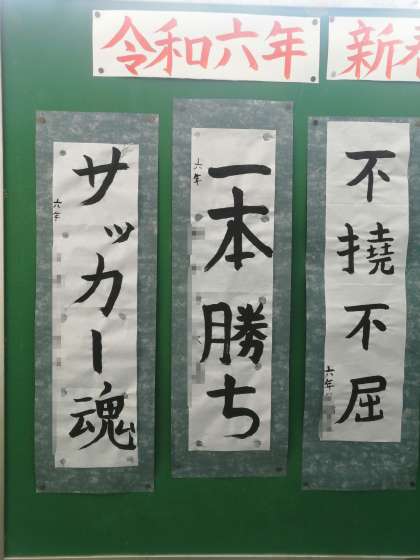 令和六年
新春
不撓不屈
六年
一本勝ち
六年
サッカー魂
六年